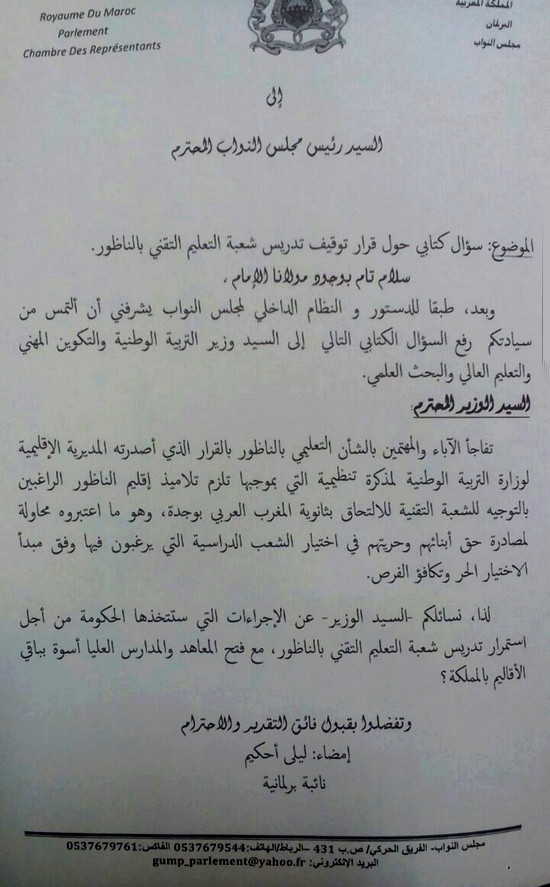 Royaume Du Maroc
Parlement
Chambre Des Représentants
المملكة المغربية
البرلمان
مجلس النواب
إلى
السيد رئيس مجلس النواب المحترم
الموضوع: سؤال كتابي حول قرار توقيف تدريس شعبة التعليم التقني بالناظور.
سلام تام بوجود مولانا الإمام ،
وبعد، طبقا للدستور و النظام الداخلي لمجلس النواب يشرفني أن ألتمس من
سيادتكم رفع السؤال الكتابي التالي إلى السيد وزير التربية الوطنية والتكوين المهني
والتعليم العالي والبحث العلمي.
السيد الوزير المحترم:
تفاجأ الآباء والمهتمين بالشأن التعليمي بالناظور بالقرار الذي أصدرته المديرية الإقليمية
لوزارة التربية الوطنية لمذكرة تنظيمية التي بموجبها تلزم تلاميذ إقليم الناظور الراغبين
بالتوجيه للشعبة التقنية للالتحاق بثانوية المغرب العربي بوجدة، وهو ما اعتبروه محاولة
لمصادرة حق أبنائهم وحريتهم في اختيار الشعب الدراسية التي يرغبون فيها وفق مبدأ
الاختيار الحر وتكافؤ الفرص.
لذا، نسائلكم -السيد الوزير- عن الإجراءات التي ستتخذها الحكومة من أجل
استمرار تدريس شعبة التعليم التقني بالناظور، مع فتح المعاهد والمدارس العليا أسوة بباقي
الأقاليم بالمملكة؟
وتفضلوا بقبول فائق التقدير والاحترام
إمضاء: ليلى أحكيم
نائبة برلمانية
مجلس النواب- الفريق الحركي/ ص.ب 431 –الرباط/الهاتف:0537679544 الفاكس:0537679761
البريد الإلكتروني: gump_parlement@yahoo.fr